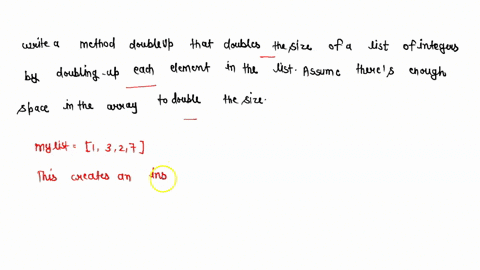 write a method doubleUp that doubles the size of a list of integers
by doubling-up each element in the list. Assume there's enough
space in the array to double the size.
mylist = [1, 3, 2, 7]
This creates an ins